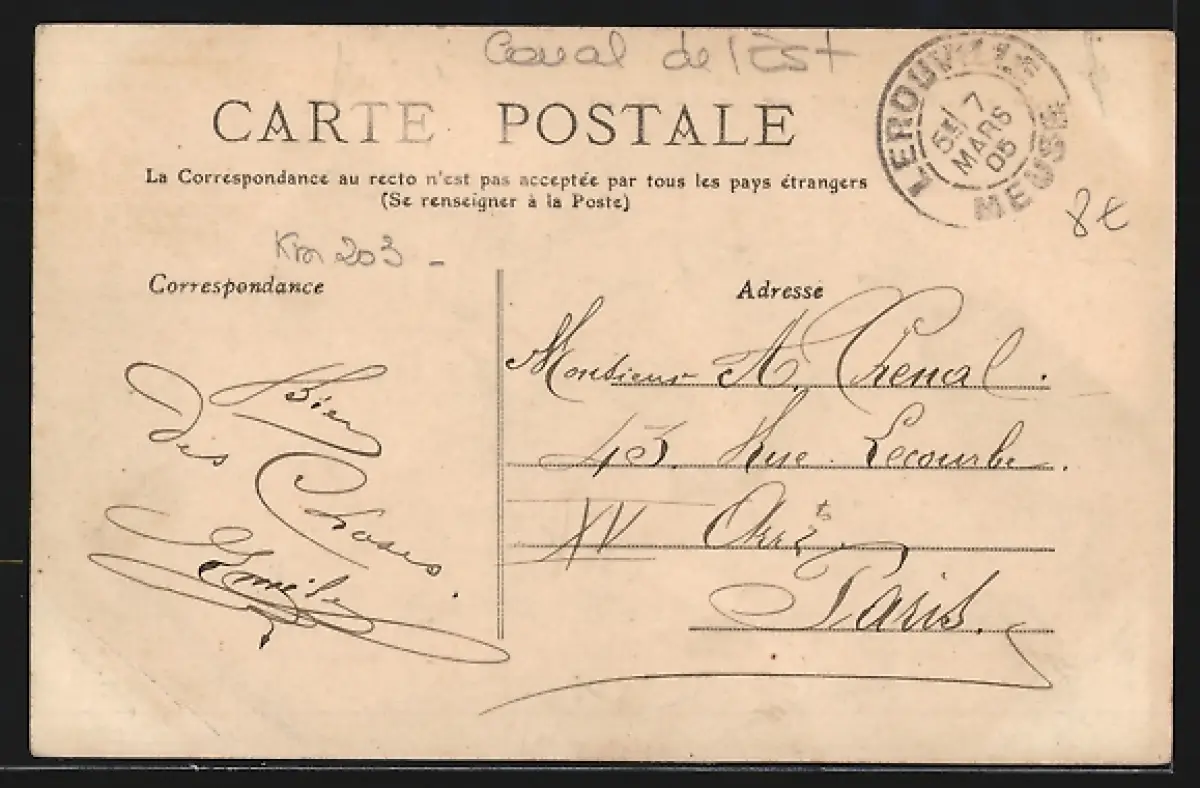 Canal de l'Est
CARTE POSTALE
La Correspondance au recto n'est pas acceptée par tous les pays étrangers
(Se renseigner à la Poste)
LEROUVILLE
7
MARS
05
MEUSE
8€
Km 203 -
Correspondance
Bien
des
Choses.
Emile
Adresse
Monsieur A. Chenal.
43. Rue Lecourbe.
XV Arr.t
Paris.